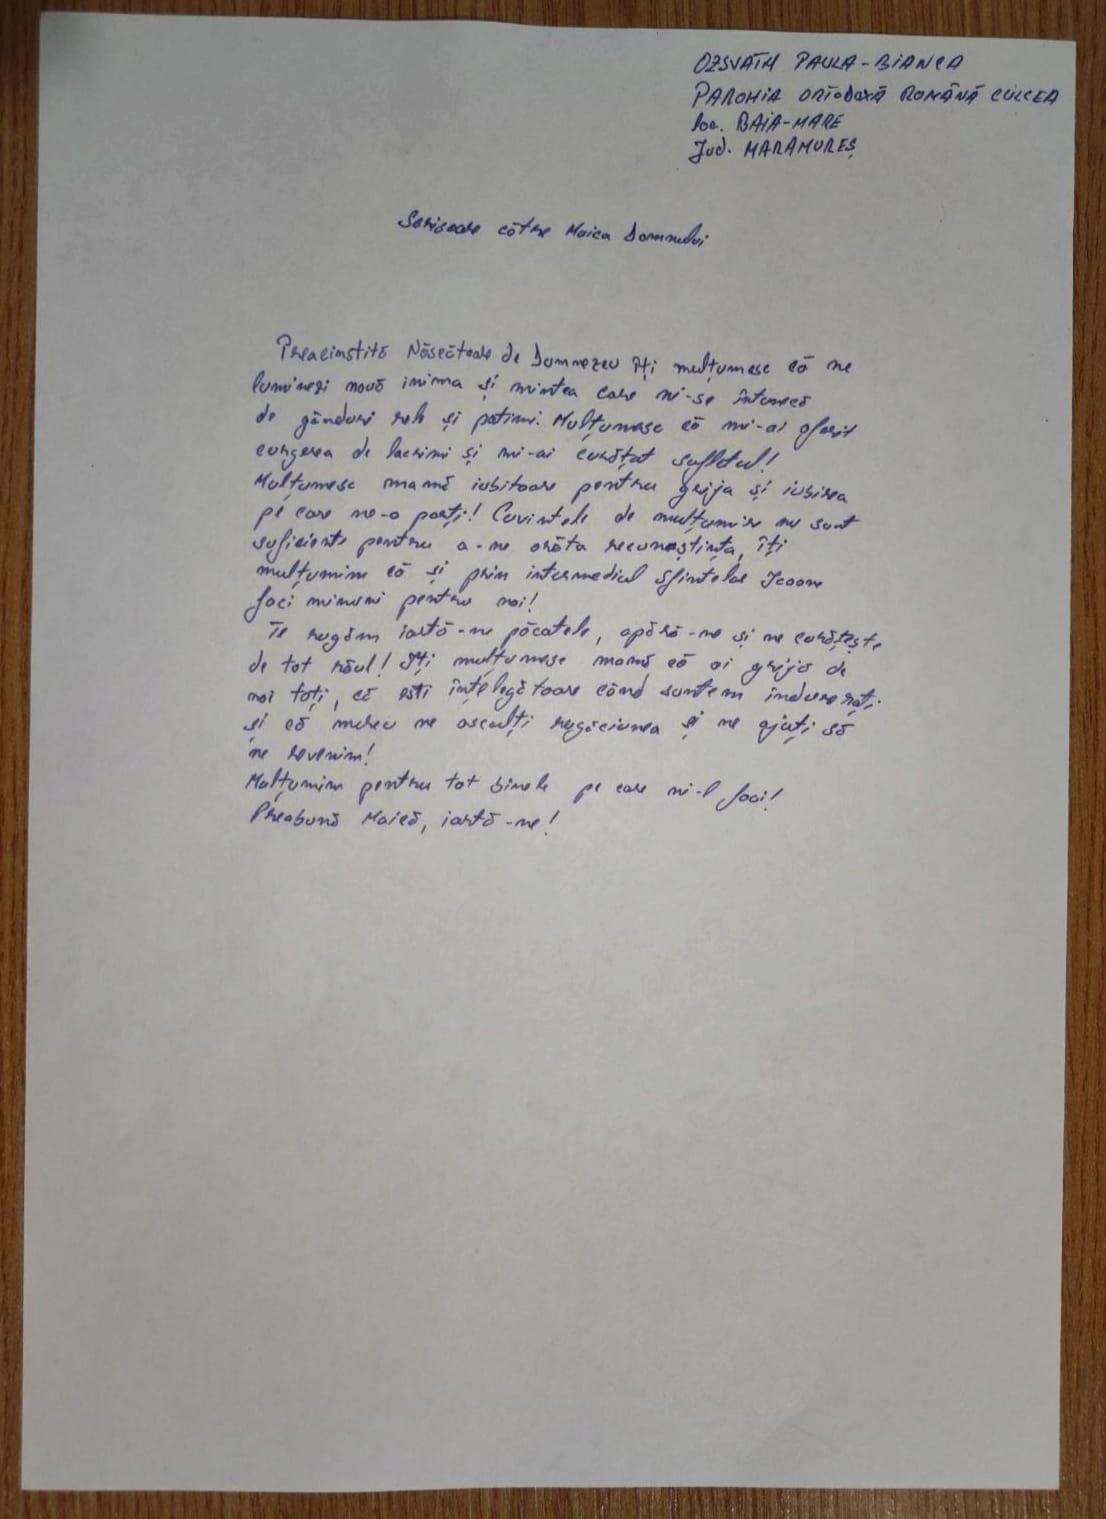 OZSVATH PAULA-BIANCA
PAROHIA ORTODOXĂ ROMÂNĂ CULCEA
loc. BAIA-MARE
Jud. MARAMUREȘ
Scrisoare către Maica Domnului
Preacinstită Născătoare de Dumnezeu îți mulțumesc că ne
luminezi nouă inima și mintea care ni-se întunecă
de gânduri rele și patimi. Mulțumesc că mi-ai oferit
curgerea de lacrimi și mi-ai curățat sufletul!
Mulțumesc mamă iubitoare pentru grija și iubirea
pe care ne-o porți! Cuvintele de mulțumire nu sunt
suficiente pentru a-ne arăta recunoștința, îți
mulțumim că și prin intermediul Sfintelor Icoane
faci minuni pentru noi!
Te rugăm iartă-ne păcatele, apără-ne și ne curățește
de tot răul! Îți mulțumesc mamă că ai grijă de
noi toți, că ești înțelegătoare când suntem îndurerați
și că mereu ne asculți rugăciunea și ne ajuți să
ne revenim!
Mulțumim pentru tot binele pe care ni-l faci!
Preabună Maică, iartă-ne!